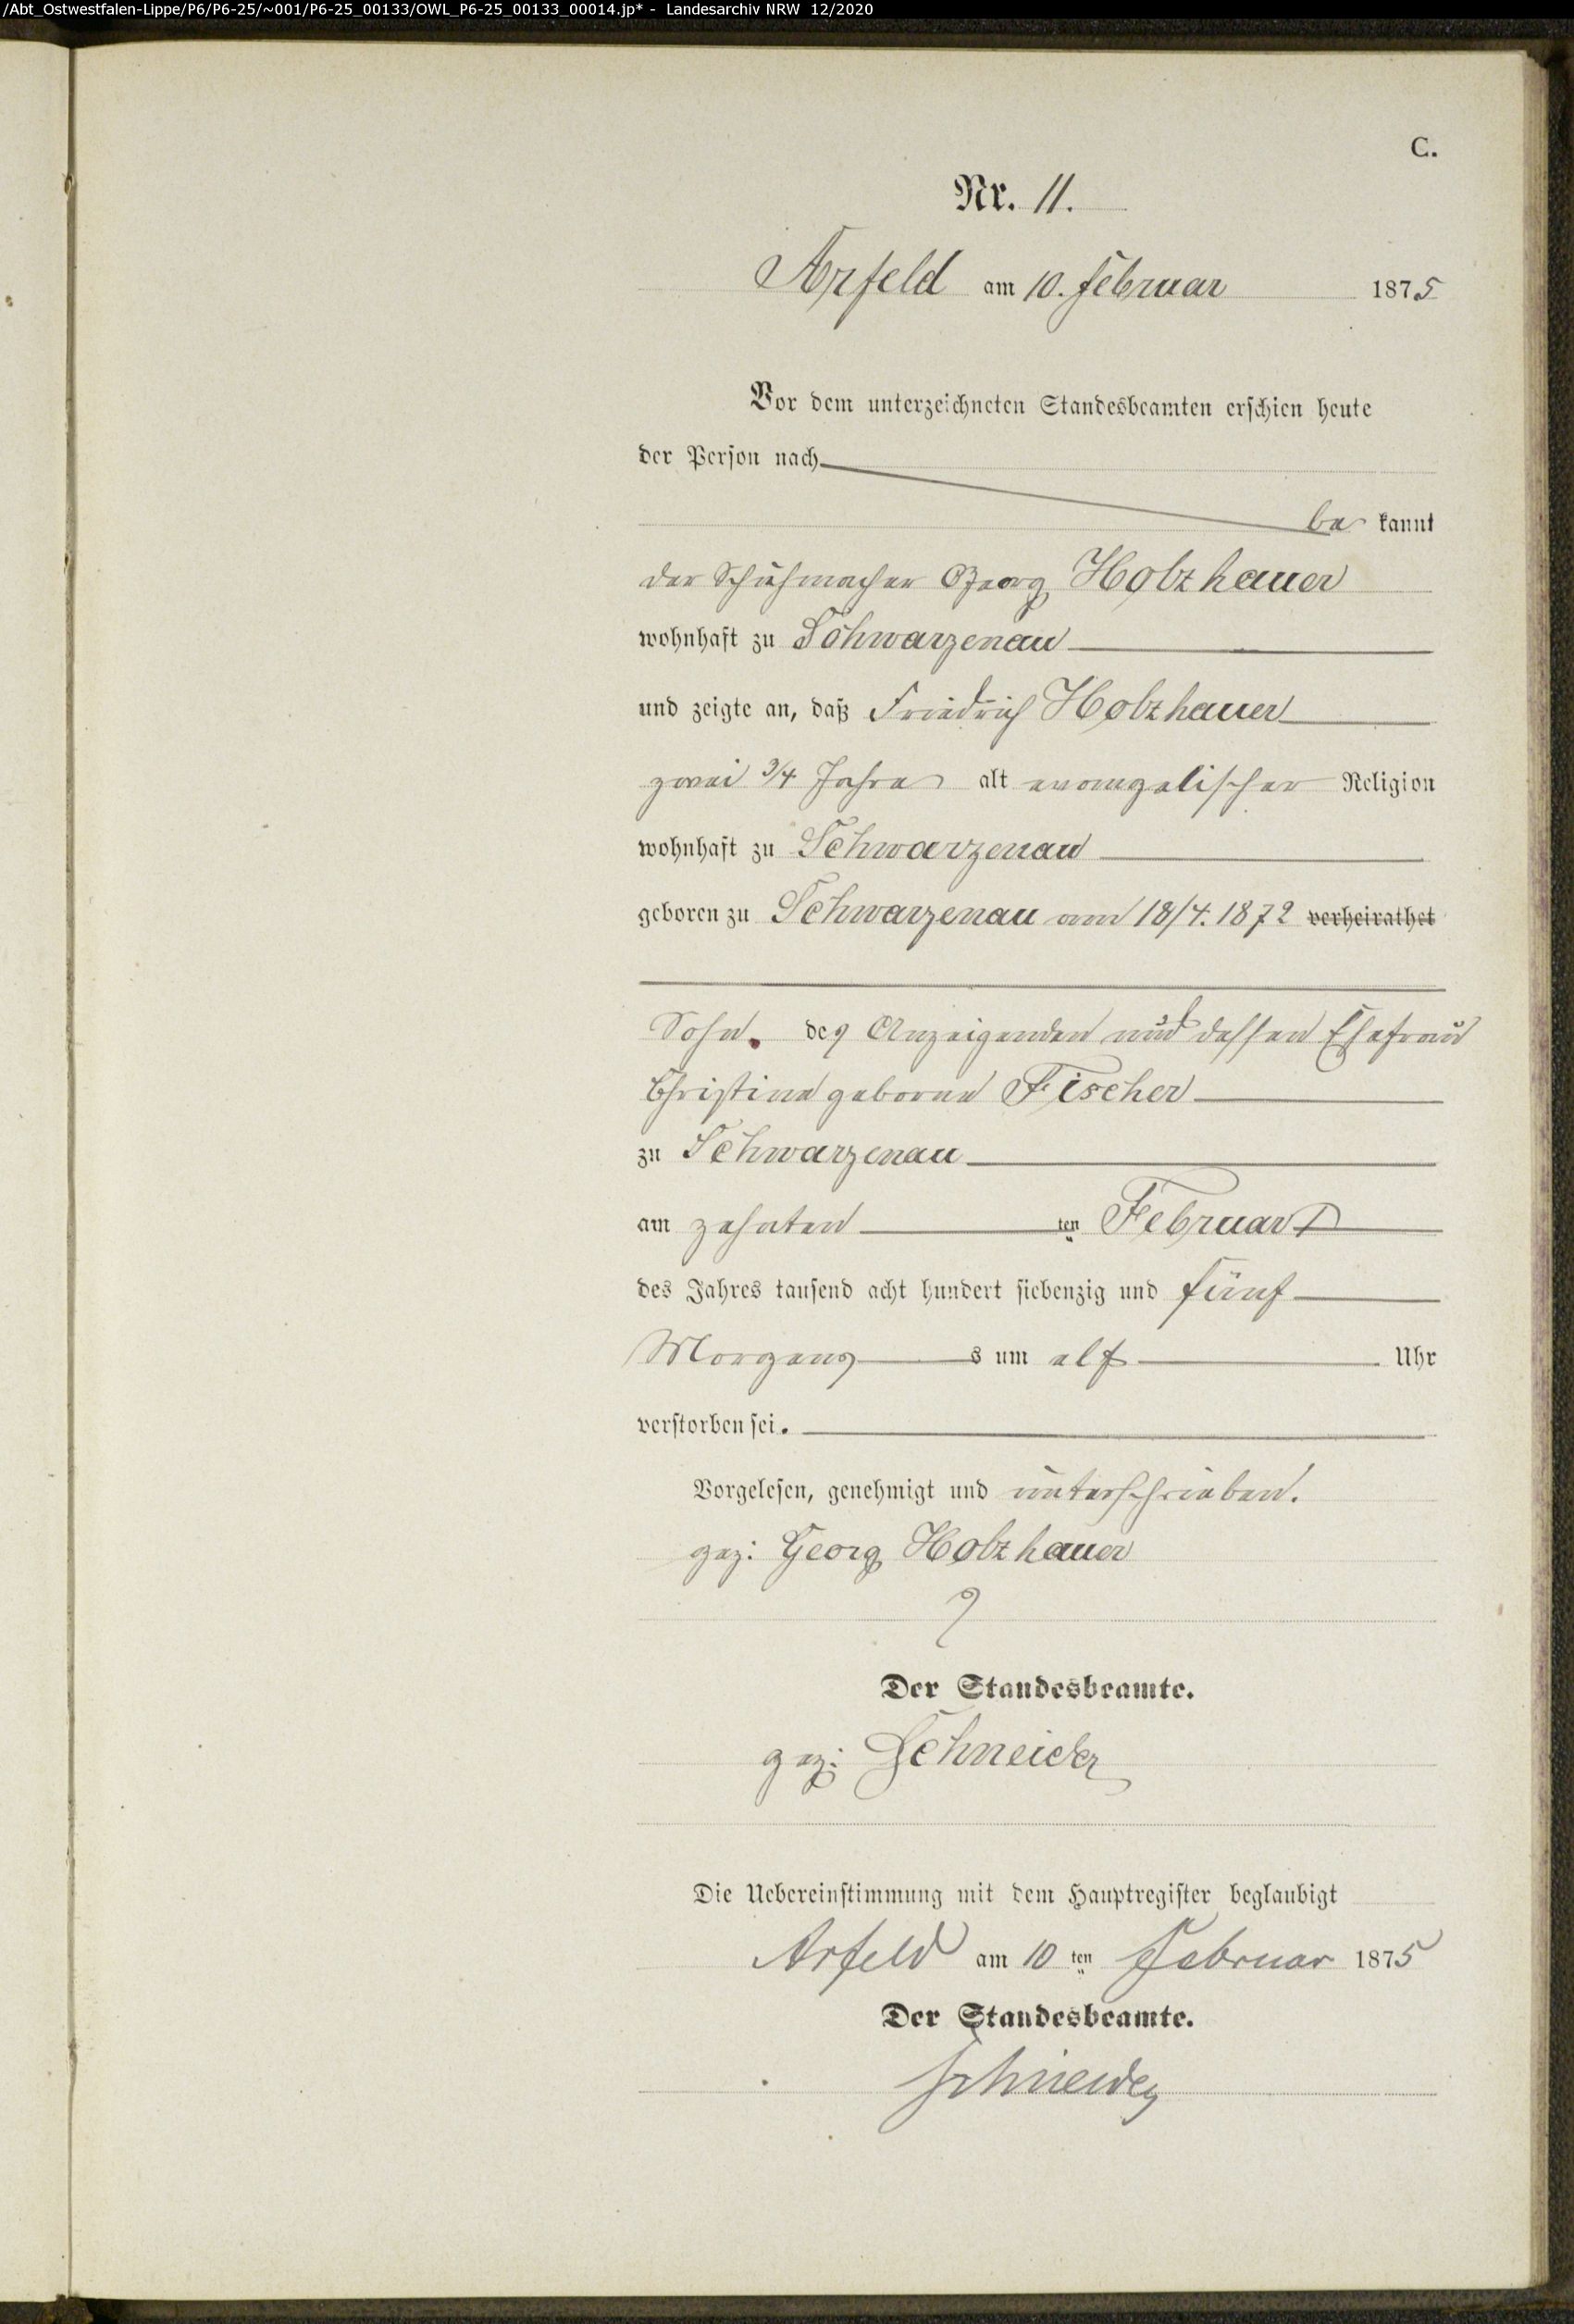 /Abt_Ostwestfalen-Lippe/P6/P6-25/~001/P6-25_00133/OWL_P6-25_00133_00014.jp* - Landesarchiv NRW 12/2020
C.
Nr. 11.
Arfeld am 10. Februar 1875
Vor dem unterzeichneten Standesbeamten erschien heute
der Person nach
be kannt
der Schuhmacher Georg Holzhauer
wohnhaft zu Schwarzenau
und zeigte an, daß Friedrich Holzhauer
zwei 3/4 Jahre alt evangelischer Religion
wohnhaft zu Schwarzenau
geboren zu Schwarzenau am 18/4. 1872 verheirathet
Sohn. des Anzeigenden und dessen Ehefrau
Christine geborne Fischer
zu Schwarzenau
am zehnten ten Februar
des Jahres tausend acht hundert siebenzig und fünf
Morgens s um elf Uhr
verstorben sei.
Vorgelesen, genehmigt und unterschrieben.
gez: Georg Holzhauer
Der Standesbeamte.
gez: Schneider
Die Uebereinstimmung mit dem Hauptregister beglaubigt
Arfeld am 10 ten Februar 1875
Der Standesbeamte.
Schneider